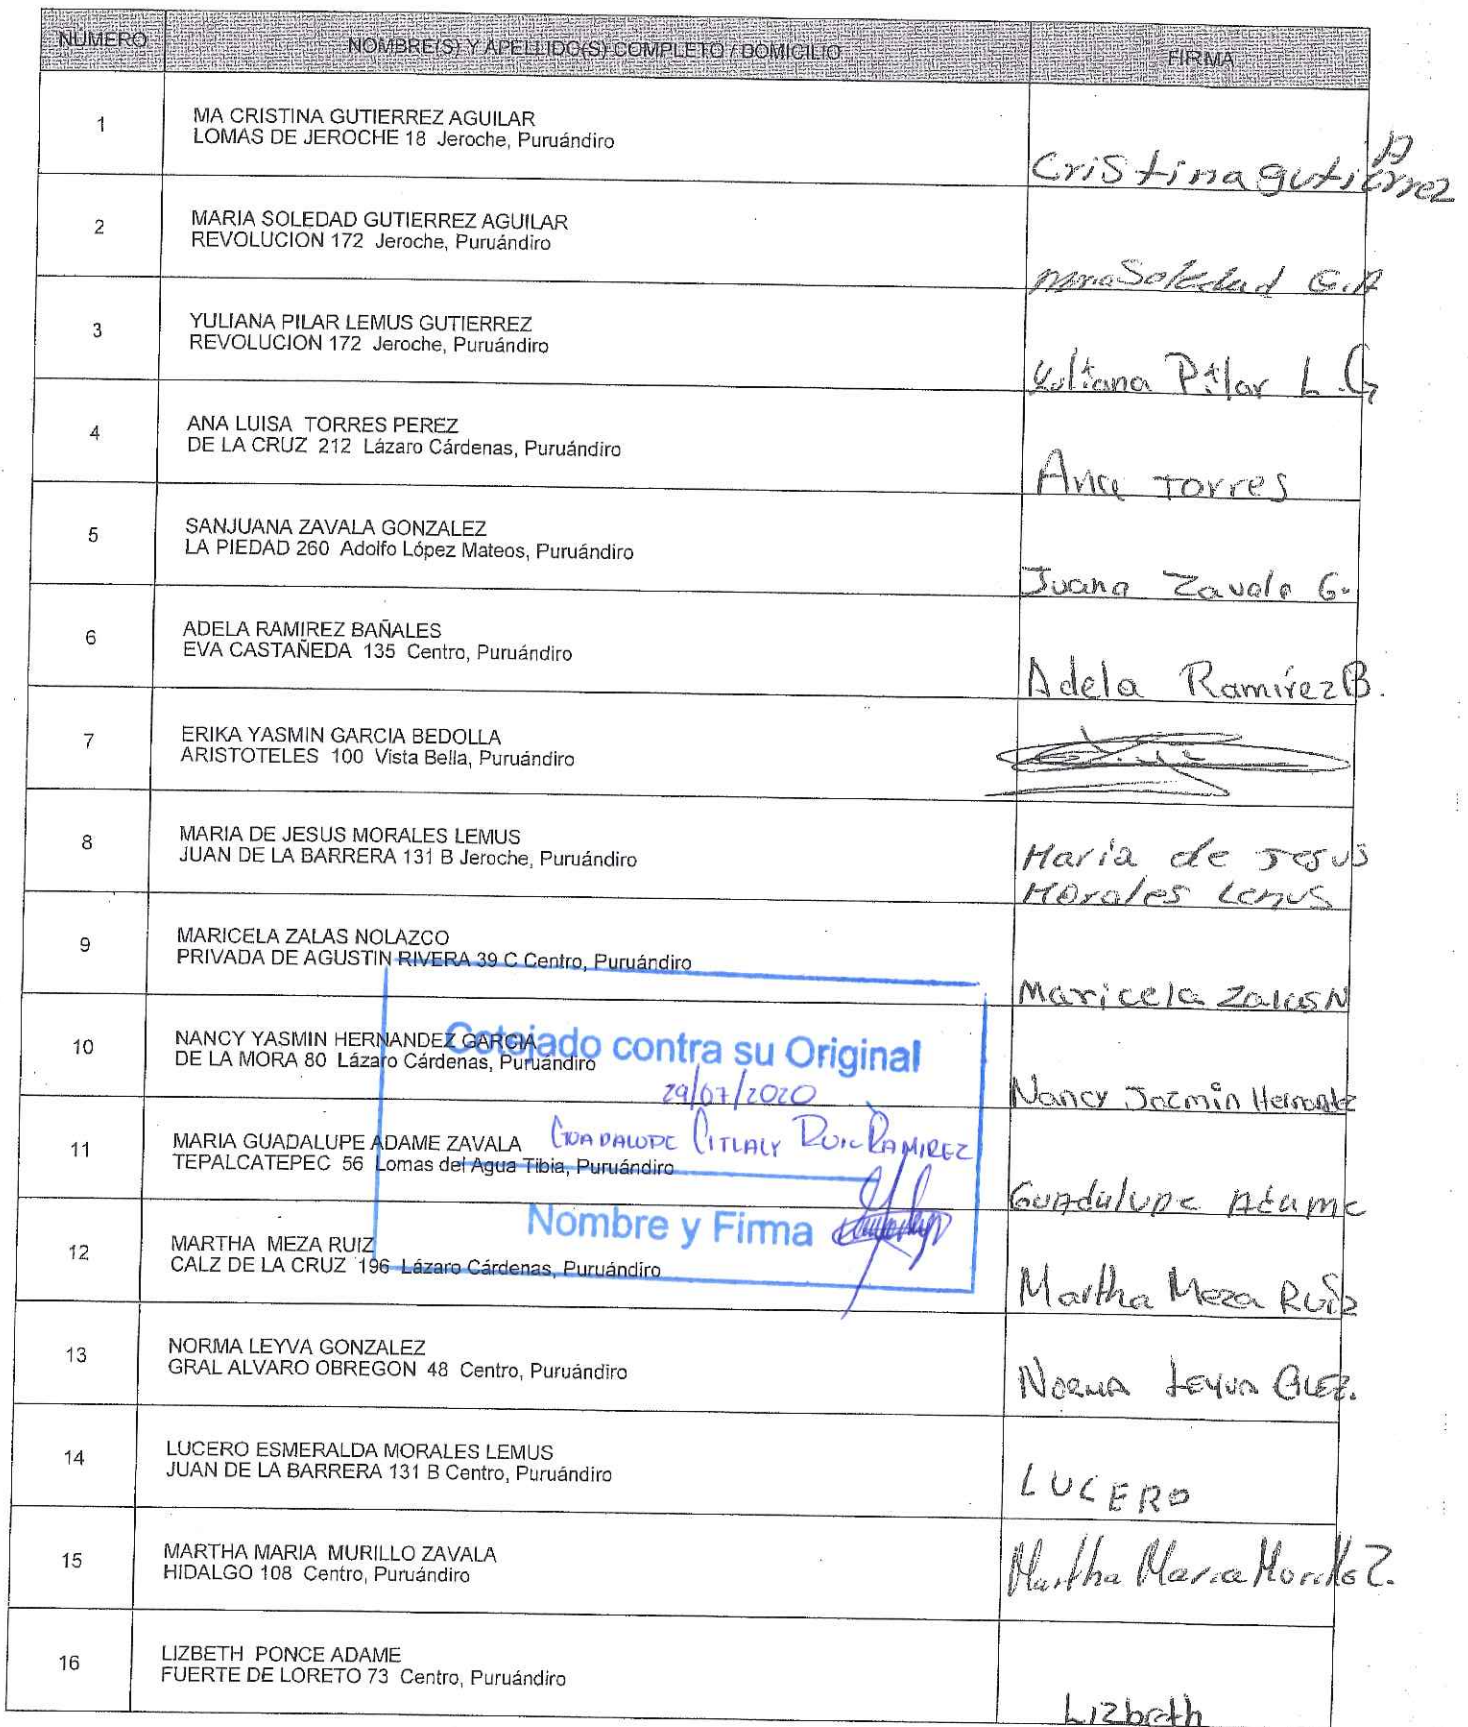 NÚMERO NOMBRE(S) Y APELLIDO(S) COMPLETO / DOMICILIO FIRMA
1 MA CRISTINA GUTIERREZ AGUILAR
LOMAS DE JEROCHE 18 Jeroche, Puruándiro
Cristina gutiérrez A
2 MARIA SOLEDAD GUTIERREZ AGUILAR
REVOLUCION 172 Jeroche, Puruándiro
Soledad G.A
3 YULIANA PILAR LEMUS GUTIERREZ
REVOLUCION 172 Jeroche, Puruándiro
Yuliana Pilar L.G
4 ANA LUISA TORRES PEREZ
DE LA CRUZ 212 Lázaro Cárdenas, Puruándiro
Ana Torres
5 SANJUANA ZAVALA GONZALEZ
LA PIEDAD 260 Adolfo López Mateos, Puruándiro
Juana Zavala G.
6 ADELA RAMIREZ BAÑALES
EVA CASTAÑEDA 135 Centro, Puruándiro
Adela Ramírez B.
7 ERIKA YASMIN GARCIA BEDOLLA
ARISTOTELES 100 Vista Bella, Puruándiro
8 MARIA DE JESUS MORALES LEMUS
JUAN DE LA BARRERA 131 B Jeroche, Puruándiro
Maria de Jesus
Morales Lemus
9 MARICELA ZALAS NOLAZCO
PRIVADA DE AGUSTIN RIVERA 39 C Centro, Puruándiro
Maricela Zalas N
10 NANCY YASMIN HERNANDEZ GARCIA
DE LA MORA 80 Lázaro Cárdenas, Puruándiro
Cotejado contra su Original
29/07/2020
Nancy Jazmin Hernandez
11 MARIA GUADALUPE ADAME ZAVALA
TEPALCATEPEC 56 Lomas del Agua Tibia, Puruándiro
GUADALUPE CITLALY RUIZ RAMIREZ
Guadalupe Adame
Nombre y Firma
12 MARTHA MEZA RUIZ
CALZ DE LA CRUZ 196 Lázaro Cárdenas, Puruándiro
Martha Meza Ruiz
13 NORMA LEYVA GONZALEZ
GRAL ALVARO OBREGON 48 Centro, Puruándiro
Norma Leyva Glez.
14 LUCERO ESMERALDA MORALES LEMUS
JUAN DE LA BARRERA 131 B Centro, Puruándiro
LUCERO
15 MARTHA MARIA MURILLO ZAVALA
HIDALGO 108 Centro, Puruándiro
Martha Maria Morillo Z.
16 LIZBETH PONCE ADAME
FUERTE DE LORETO 73 Centro, Puruándiro
Lizbeth